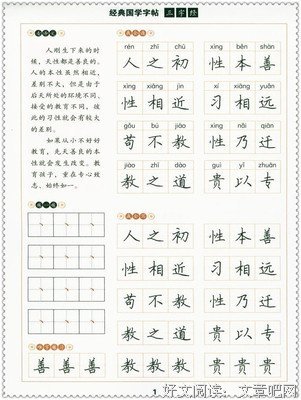 经典国学字帖 三字经
人刚生下来的时
候，天性都是善良的。
人的本性虽然相近，
差别不大，但是由于
后天所处的环境不同，
接受的教育不同，彼
此的习性就会有较大
的差别。
如果从小不好好
教育，先天善良的本
性就会发生改变。教
育孩子，重在专心致
志，始终如一。
rén zhī chū xìng běn shàn
人之初 性本善
xìng xiāng jìn xí xiāng yuǎn
性相近 习相远
gǒu bú jiào xìng nǎi qiān
苟不教 性乃迁
jiào zhī dào guì yǐ zhuān
教之道 贵以专
人之初 性本善
性相近 习相远
苟不教 性乃迁
教之道 贵以专
善善善 教教教 贵贵贵
1
好文阅读：文章吧网